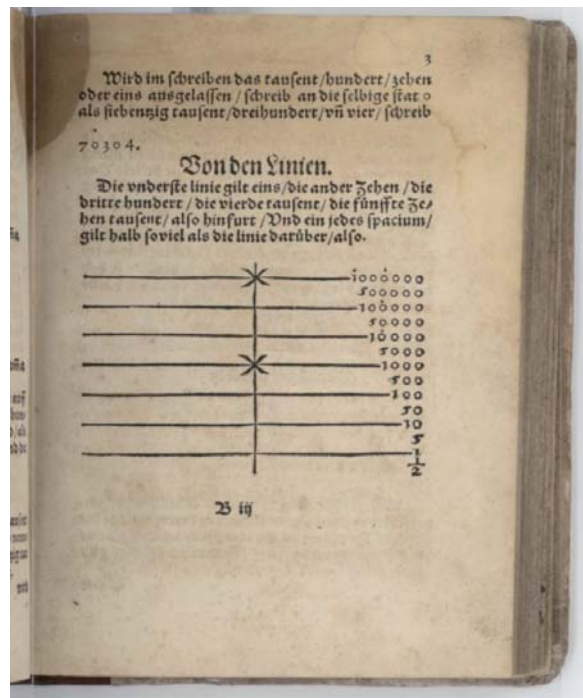 3
Wird im schreiben das tausent/hundert/zehen
oder eins ausgelassen / schreib an die selbige stat 0
als siebentzig tausent/dreihundert/vñ vier/ schreib
70304.
Von den Linien.
Die vnderste linie gilt eins/die ander Zehen /die
dritte hundert / die vierde tausent/ die fünffte Ze/
hen tausent/ also hinfurt /Vnd ein jedes spacium/
gilt halb soviel als die linie darüber/also.
1000000
500000
100000
50000
10000
5000
1000
500
100
50
10
5
1
1/2
B iij